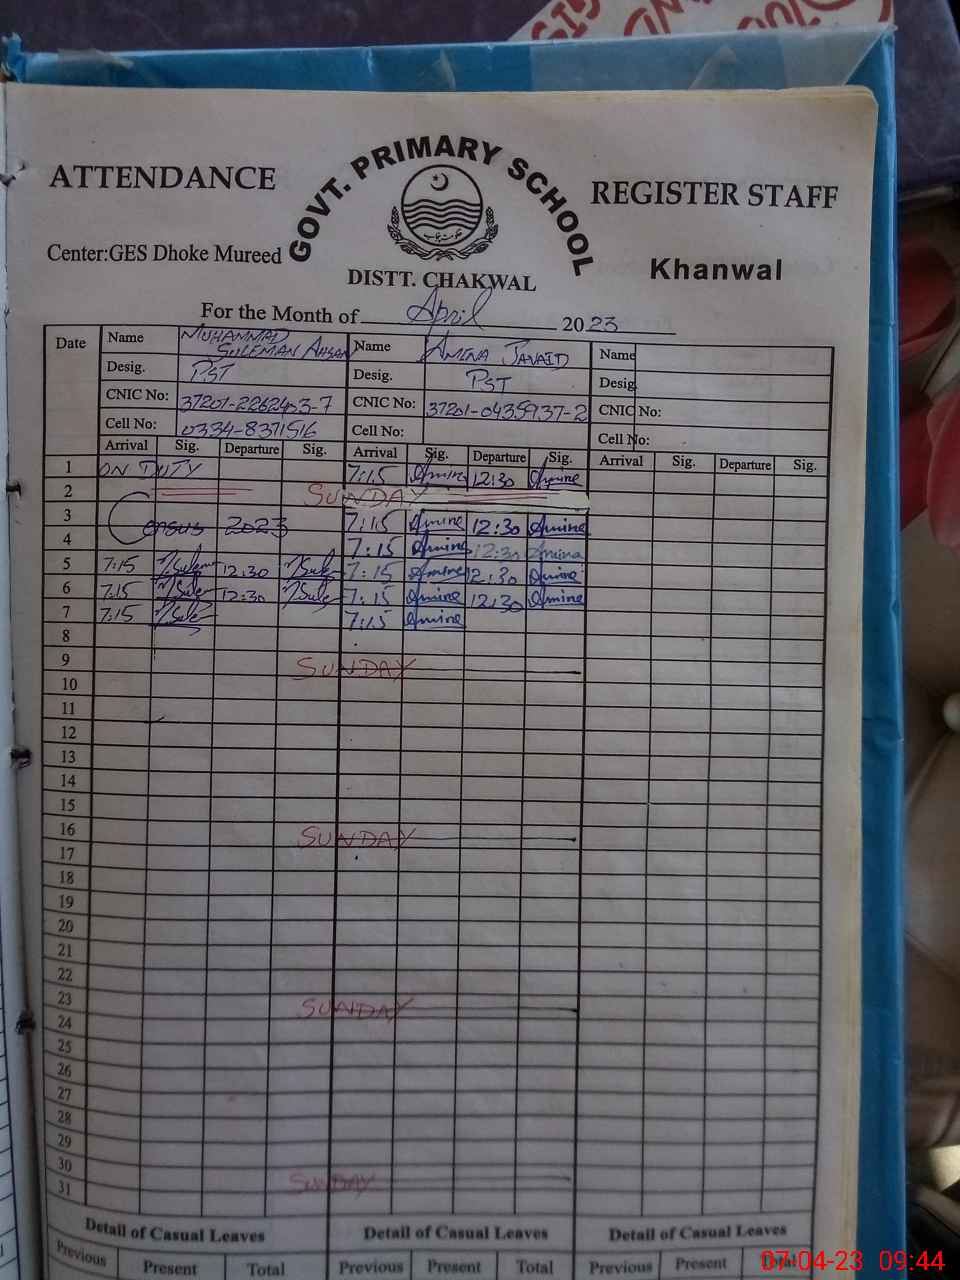 ATTENDANCE
GOVT. PRIMARY SCHOOL
REGISTER STAFF
Center:GES Dhoke Mureed
DISTT. CHAKWAL
Khanwal
For the Month of April 2023
Date Name MUHAMMAD SULEMAN AHSAN Name AMINA JAVAID Name
Desig. PST Desig. PST Desig
CNIC No: 37201-2262403-7 CNIC No: 37201-0435937-2 CNIC No:
Cell No: 0334-8371516 Cell No: Cell No:
Arrival Sig. Departure Sig. Arrival Sig. Departure Sig. Arrival Sig. Departure Sig.
1 ON DUTY 7:15 Amine 12:30 Amine
2 SUNDAY
3 Census 2023 7:15 Amine 12:30 Amine
4 7:15 Amine 12:30 Amina
5 7:15 M Sulem 12:30 M Sule 7:15 Amine 12:30 Amine
6 7:15 M Sule 12:30 M Sule 7:15 Amine 12:30 Amine
7 7:15 M Sule 7:15 Amine
8
9 SUNDAY
10
11
12
13
14
15
16 SUNDAY
17
18
19
20
21
22
23 SUNDAY
24
25
26
27
28
29
30 SUNDAY
31
Detail of Casual Leaves Detail of Casual Leaves Detail of Casual Leaves
Previous Present Total Previous Present Total Previous Present
07-04-23 09:44